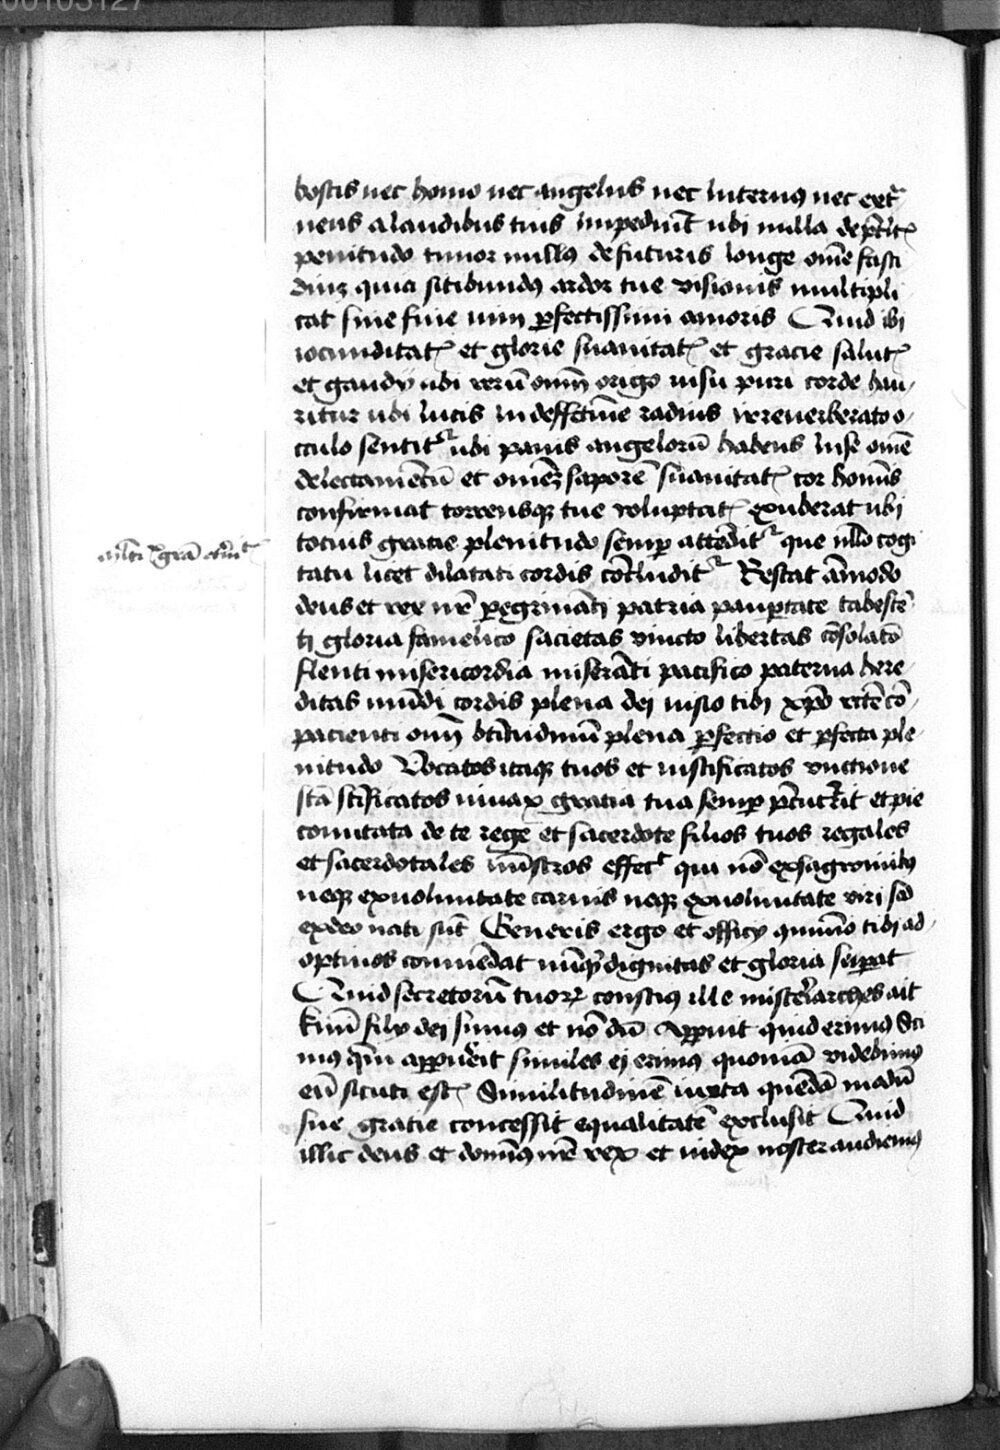 00103127
hostis nec homo nec angelus nec internus nec ext
neus a laudibus tuis impediūt ubi nulla de
penitudo timor nullus de futuris longe om̄e fasti
diuꝫ quia sitibundus ardor tue visionis multipli
cat sine fine uim ꝑfectissimi amoris Quid ibi
iocunditat et glorie suauitat et gracie salut
et gaudij ubi rerū om̄ origo uisu puri corde hau
ritur ubi lucis indeffectiue radius irreuerberato o
culo sentit ubi panis angelorū habens in se om̄e
delectamentū et omeꝫ saporē suauitat cor hom̄is
confirmat torrensqꝫ tue voluptat exuberat ubi
totius gratie plenitudo semꝑ attēdit que nllo cogi
m̄lti grā
tatu licet dilatati cordis cōcludit Restat āmodo
deus et rex nr̄e ꝑegrināti patria pauꝑtate tabescē
ti gloria famelico sacietas vincto libertas cōsolatō
flenti misericordia miserāti pacifico paterna here
ditas mūdi cordis plena dei uisio tibi xpō cō
pacienti om̄ plena ꝑfectio et ꝑfecta ple
nitudo Vocatos itaqꝫ tuos et iustificatos vnctione
scā scificatos gratia tua semper et pie
de te rege et sacerdote filios tuos regales
et sacerdotales effec qui nō ex
neqꝫ ex uoluntate carnis neqꝫ ex uoluntate viri sed
ex deo nati sūt Generis ergo et officij tibi ad
optiuos comēdat dignitas et gloria
Quid secretorū tuorꝫ conscius ille misterarches ait
filij dei sumus et nō dū apparuit quid erimus Sci
mus qm̄ apparuerit similes ei erimus quoniā videbimus
eū sicuti est Similitudinē iuxta quēdā modū
sue gratie concessit equalitatē exclusit Quid
illic deus et dominus nr̄ rex et iudex noster audiemus